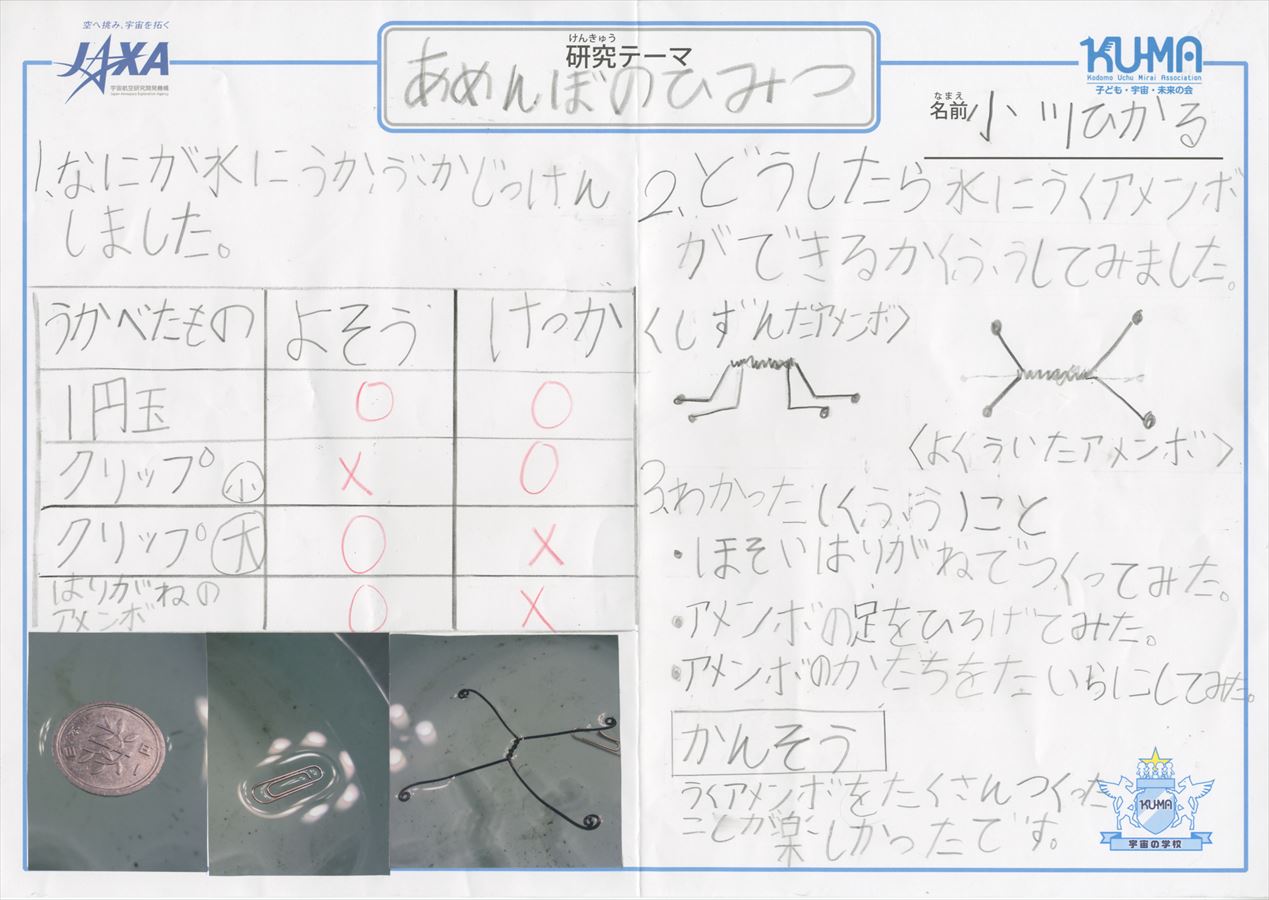 空へ挑み、宇宙を拓く
JAXA
宇宙航空研究開発機構
Japan Aerospace Exploration Agency
けんきゅう
研究テーマ
あめんぼのひみつ
KU-MA
Kodomo Uchu Mirai Association
子ども・宇宙・未来の会
なまえ
名前/小川ひかる
1、なにが水にうかぶかじっけん
しました。
うかべたもの よそう けっか
1円玉 ○ ○
クリップ小 × ○
クリップ大 ○ ×
はりがねの
アメンボ ○ ×
2、どうしたら水にうくアメンボ
ができるかくふうしてみました。
〈しずんだアメンボ〉
〈よくういたアメンボ〉
3、わかった(くふう)こと
・ほそいはりがねでつくってみた。
・アメンボの足をひろげてみた。
・アメンボのかたちをたいらにしてみた。
かんそう
うくアメンボをたくさんつくった
ことが楽しかったです。
KU-MA
宇宙の学校